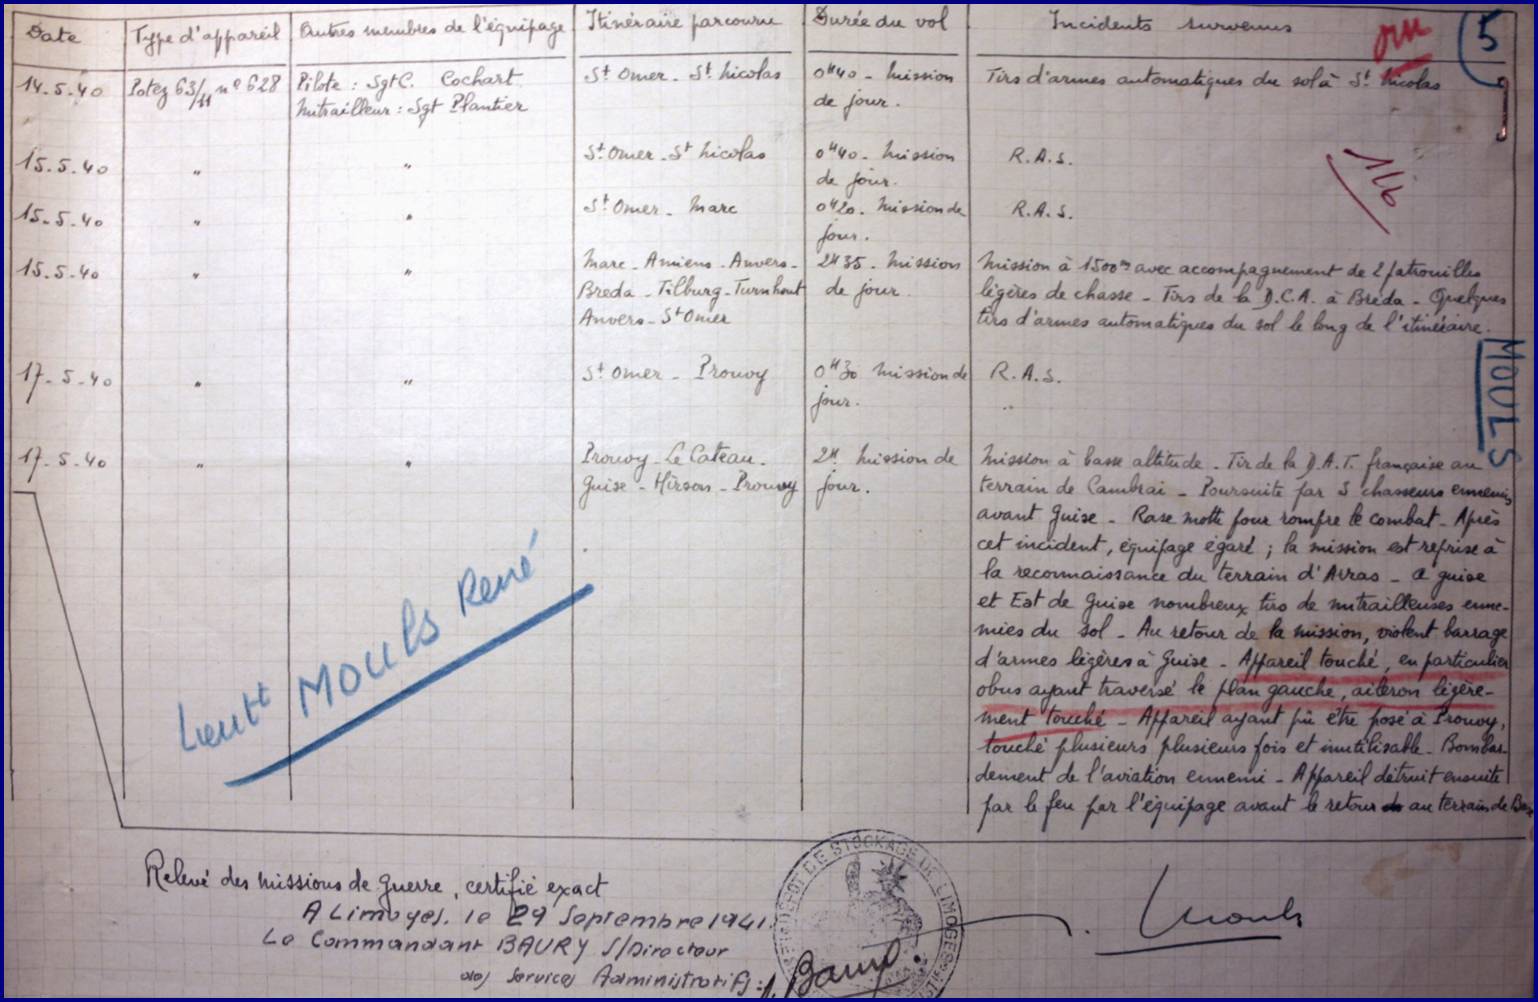 Date Type d'appareil Autres membres de l'équipage Itinéraire parcouru Durée du vol Incidents survenus
5
14.5.40 Potez 63/11 nº 628 Pilote : SgtC. Cochart St Omer - St Nicolas 0H40 - Mission Tirs d'armes automatiques du sol à St Nicolas
Mitrailleur : Sgt Plantier de jour.
15.5.40 " " St Omer - St Nicolas 0H40 - Mission R.A.S.
de jour.
15.5.40 " " St Omer - Marc 0H20. Mission de R.A.S.
jour.
15.5.40 " " Marc - Amiens - Anvers - 2H35 - Mission Mission à 1500m avec accompagnement de 2 patrouilles
Breda - Tilburg - Turnhout de jour. légères de chasse - Tirs de la D.C.A. à Breda - Quelques
Anvers - St Omer tirs d'armes automatiques du sol le long de l'itinéraire.
MOULS
17.5.40 " " St Omer - Prouvy 0H30 Mission de R.A.S.
jour.
17.5.40 " " Prouvy - Le Cateau. 2H Mission de Mission à basse altitude - Tir de la D.A.T. française au
Guise - Hirson - Prouvy jour. terrain de Cambrai - Poursuite par 5 chasseurs ennemis
avant Guise - Rase motte pour rompre le combat - Après
cet incident, équipage égaré ; la mission est reprise à
la reconnaissance du terrain d'Arras - A Guise
et Est de Guise nombreux tirs de mitrailleuses enne-
mies du sol - Au retour de la mission, violent barrage
d'armes légères à Guise - Appareil touché, en particulier
obus ayant traversé le plan gauche, aileron légère-
ment touché - Appareil ayant pû être posé à Prouvy,
touché plusieurs plusieurs fois et inutilisable - Bombar-
dement de l'aviation ennemi - Appareil détruit ensuite
par le feu par l'équipage avant le retour au terrain de
Lieutt MOULS René
Relevé des missions de Guerre, certifié exact
A Limoges. le 29 Septembre 1941.
Le Commandant BAURY S/Directeur
des Services Administratifs :
DEPOT DE STOCKAGE DE LIMOGES
Baury.
Mouls